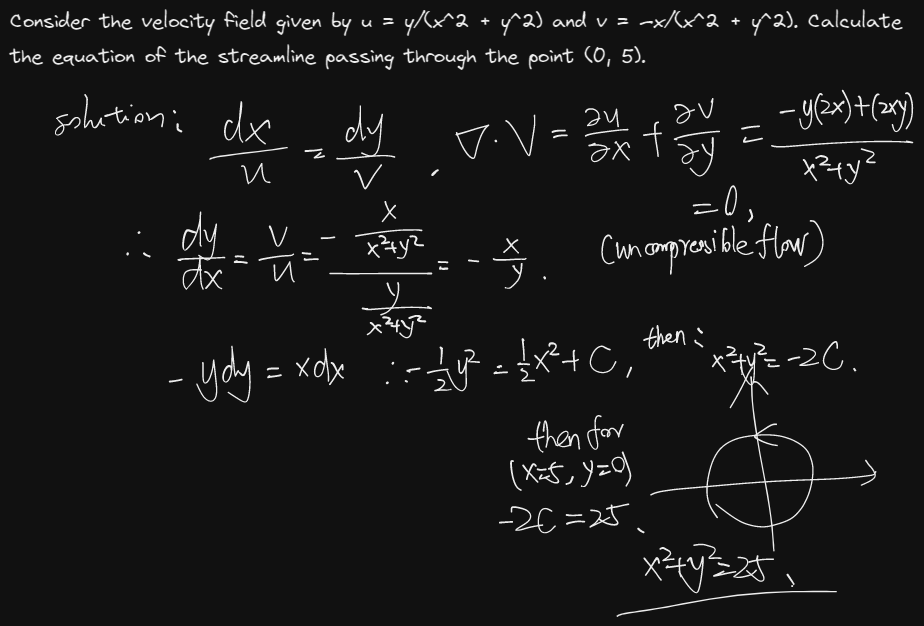 Consider the velocity field given by u = y/(x^2 + y^2) and v = -x/(x^2 + y^2). Calculate
the equation of the streamline passing through the point (0, 5).
solution: dx/u = dy/v, ∇·V = ∂u/∂x + ∂v/∂y = (-y(2x)+(2xy))/(x²+y²)
= 0,
(uncompressible flow)
∴ dy/dx = v/u = -(x/(x²+y²))/(y/(x²+y²)) = -x/y.
-ydy = xdx ∴ -1/2y² = 1/2x² + C, then: x²+y² = -2C.
then for
(x=5, y=0)
-2C = 25.
x²+y²=25,